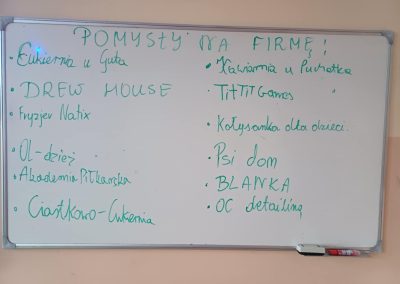 POMYSŁY NA FIRMĘ!
• Cukiernia u Guta
• DREW HOUSE
• Fryzjer Natix
• Ol-dzież
• Akademia Piłkarska
• Ciastkowo-Cukernia
• Kawiarnia u Puchatka
• TitTitGames
• Kołysanka dla dzieci
• Psi dom
• BLANKA
• OC detailing